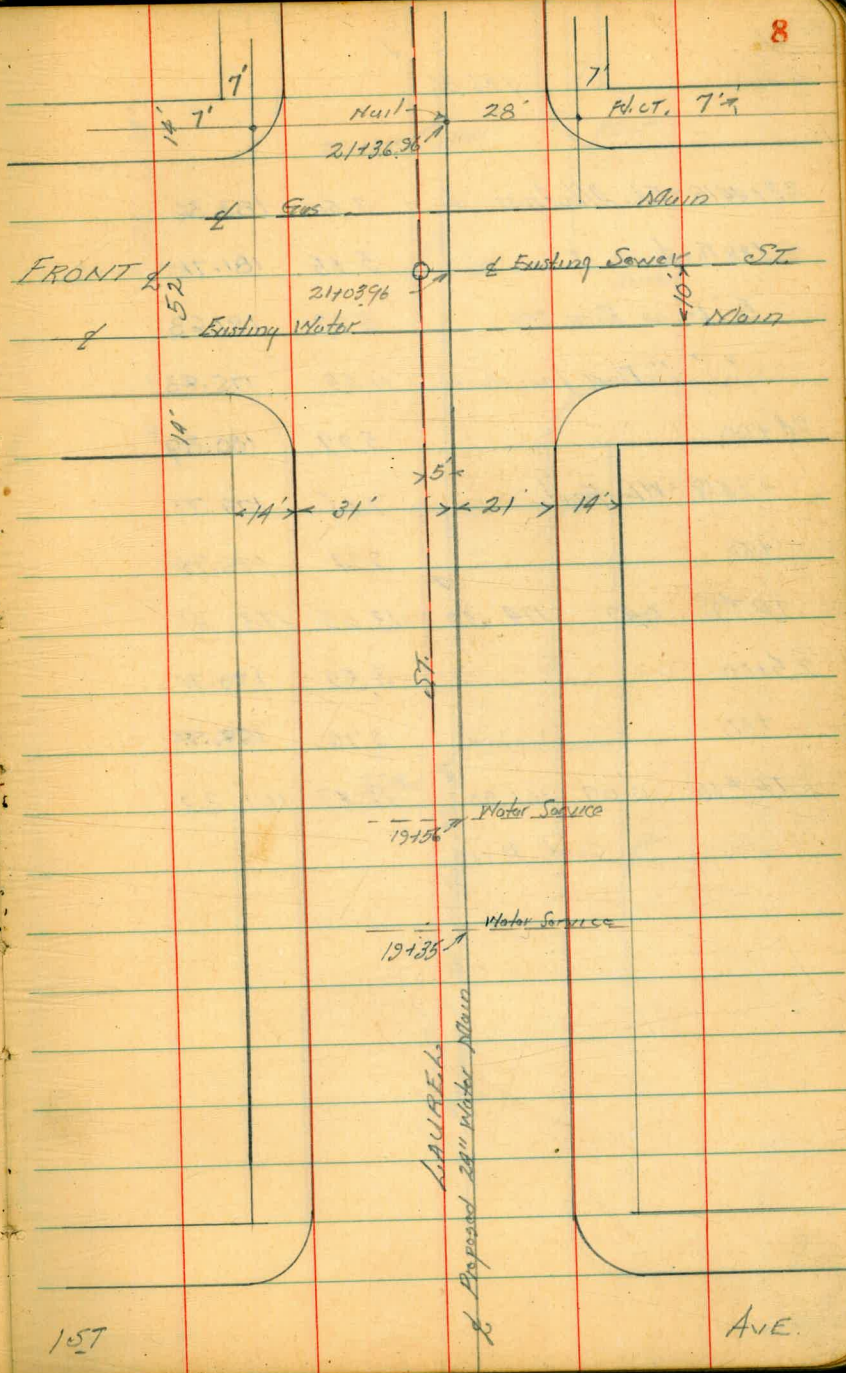 8
7' 7'
14' 7' Nail 28' N.CT. 7'
21+36.96
℄ Gas Main
FRONT ℄ ℄ Existing Sewer ST.
52 21+03.96 10'
℄ Existing Water Main
14'
5'
14' 31' 21' 14'
ST.
Water Service
19+56
Water Service
19+35
LAUREL
℄ Proposed 24" Water Main
1ST AVE.